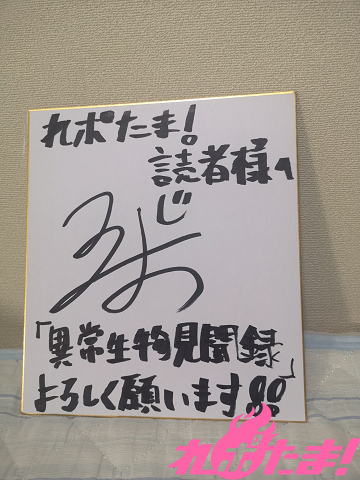 れポたま!
読者様へ
「異常生物見聞録」
よろしく願います!!
れポたま!